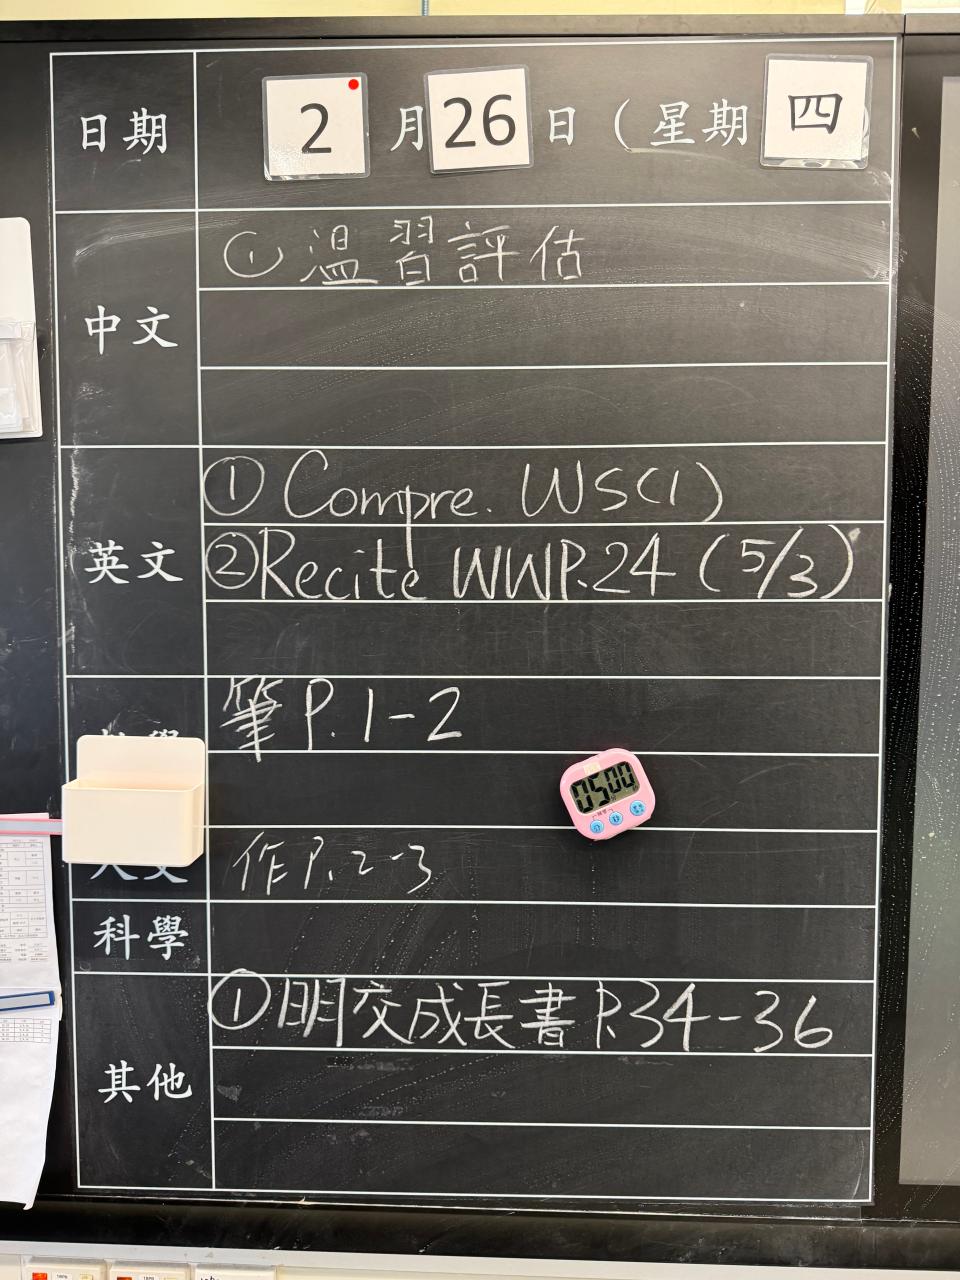 日期 2 月 26 日 ( 星期 四
中文 ① 溫習評估
英文 ① Compre. WS(1)
② Recite WWP.24 (5/3)
筆 P.1-2
05 00
人文 作P.2-3
科學
其他 ① 明交成長書 P.34-36